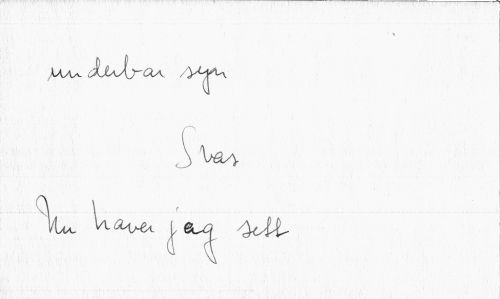 underbar syn
Svas
Nu haver jag sett